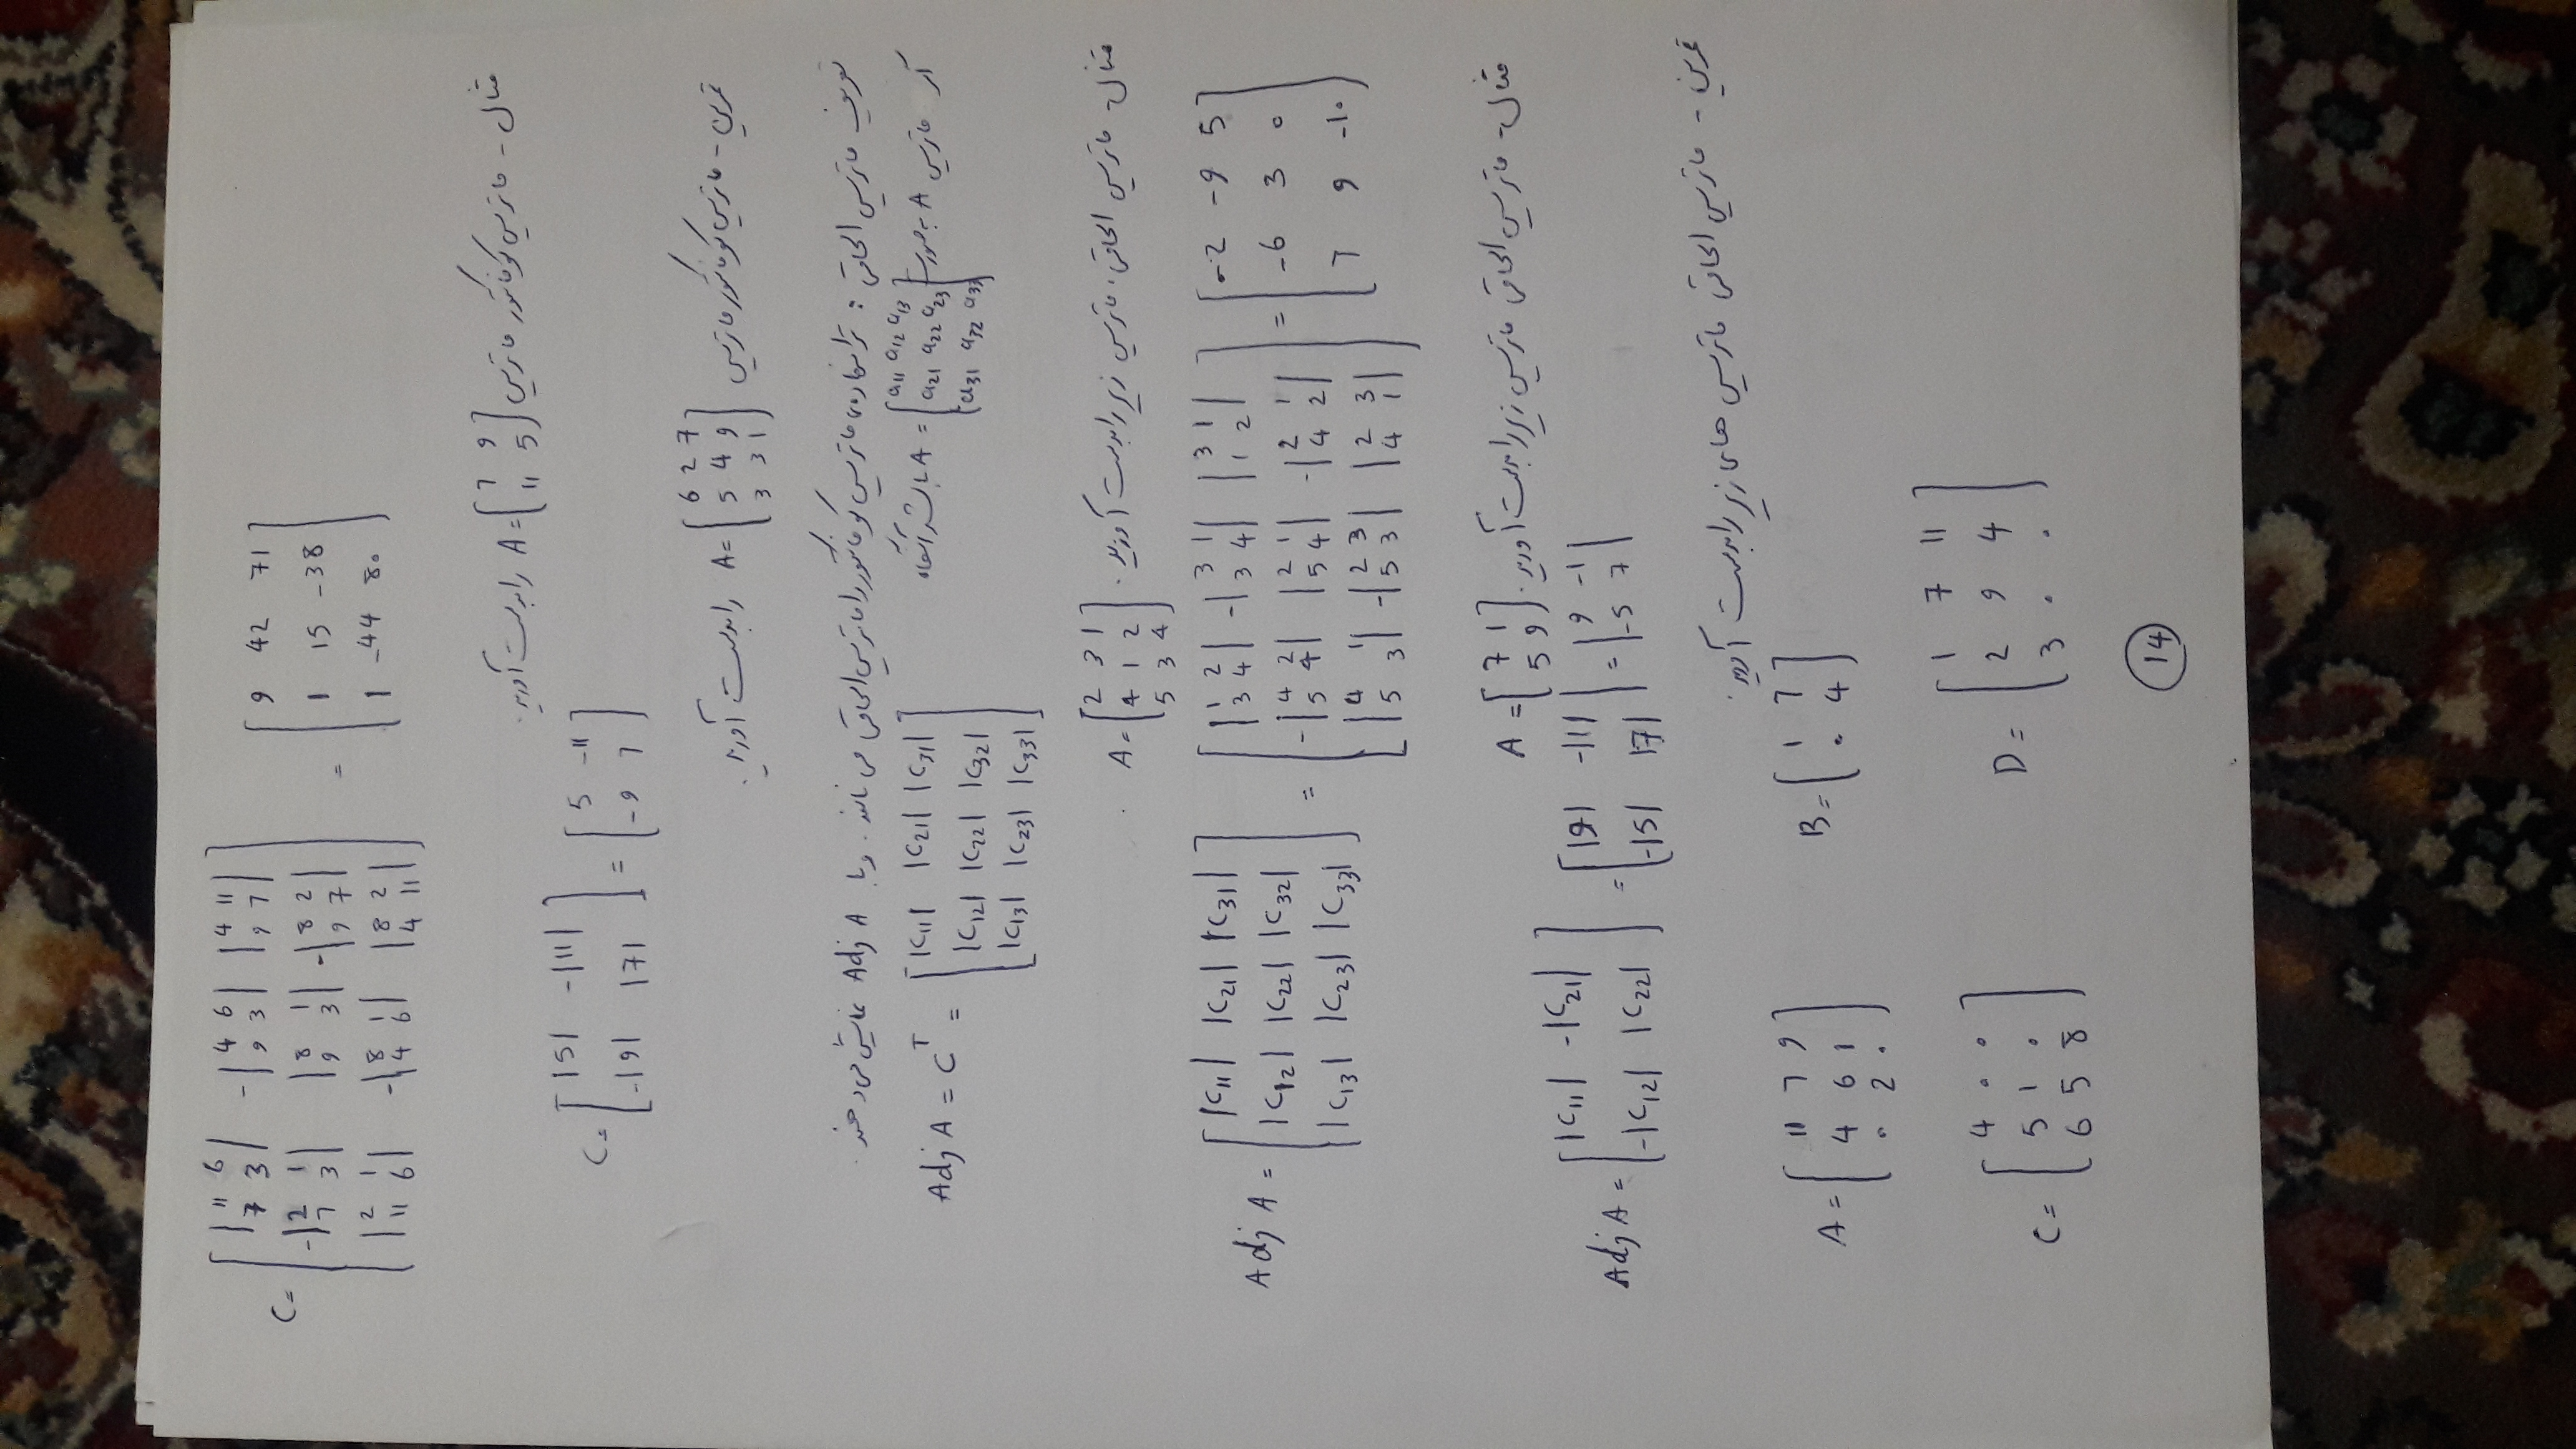 C = [ |11 6; 7 3| -|4 6; 9 3| |4 11; 9 7| ; -|2 1; 7 3| |8 1; 9 3| -|8 2; 9 7| ; |2 1; 11 6| -|8 1; 4 6| |8 2; 4 11| ] = [ 9 42 71 ; 1 15 -38 ; 1 -44 80 ]
مثال - ماتریس کوفاکتور ماتریس A = [ 7 9 ; 11 5 ] را بدست آورید.
C = [ |5| -|11| ; -|9| |7| ] = [ 5 -11 ; -9 7 ]
تمرین - ماتریس کوفاکتور ماتریس A = [ 6 2 7 ; 5 4 9 ; 3 3 1 ] را بدست آورید.
تعریف ماتریس الحاقی : ترانهاده ماتریس کوفاکتور را ماتریس الحاقی می نامند. و با Adj A نمایش می دهند.
اگر ماتریس A به صورت A = [ a11 a12 a13 ; a21 a22 a23 ; a31 a32 a33 ] باشد آنگاه
Adj A = C^T = [ |C11| |C21| |C31| ; |C12| |C22| |C32| ; |C13| |C23| |C33| ]
مثال - ماتریس الحاقی ماتریس زیر را بدست آورید.
A = [ 2 3 1 ; 4 1 2 ; 5 3 4 ]
Adj A = [ |C11| |C21| |C31| ; |C12| |C22| |C32| ; |C13| |C23| |C33| ] = [ |1 2; 3 4| -|3 1; 3 4| |3 1; 1 2| ; -|4 2; 5 4| |2 1; 5 4| -|2 1; 4 2| ; |4 1; 5 3| -|2 3; 5 3| |2 3; 4 1| ] = [ -2 -9 5 ; -6 3 0 ; 7 9 -10 ]
مثال - ماتریس الحاقی ماتریس زیر را بدست آورید. A = [ 7 1 ; 5 9 ]
Adj A = [ |C11| -|C21| ; -|C12| |C22| ] = [ |9| -|1| ; -|5| |7| ] = | 9 -1 ; -5 7 |
تمرین - ماتریس الحاقی ماتریس های زیر را بدست آورید.
A = [ 11 7 9 ; 4 6 1 ; 0 2 0 ] B = [ 1 7 ; 0 4 ]
C = [ 4 0 0 ; 5 1 0 ; 6 5 8 ] D = [ 1 7 11 ; 2 9 4 ; 3 0 0 ]
14